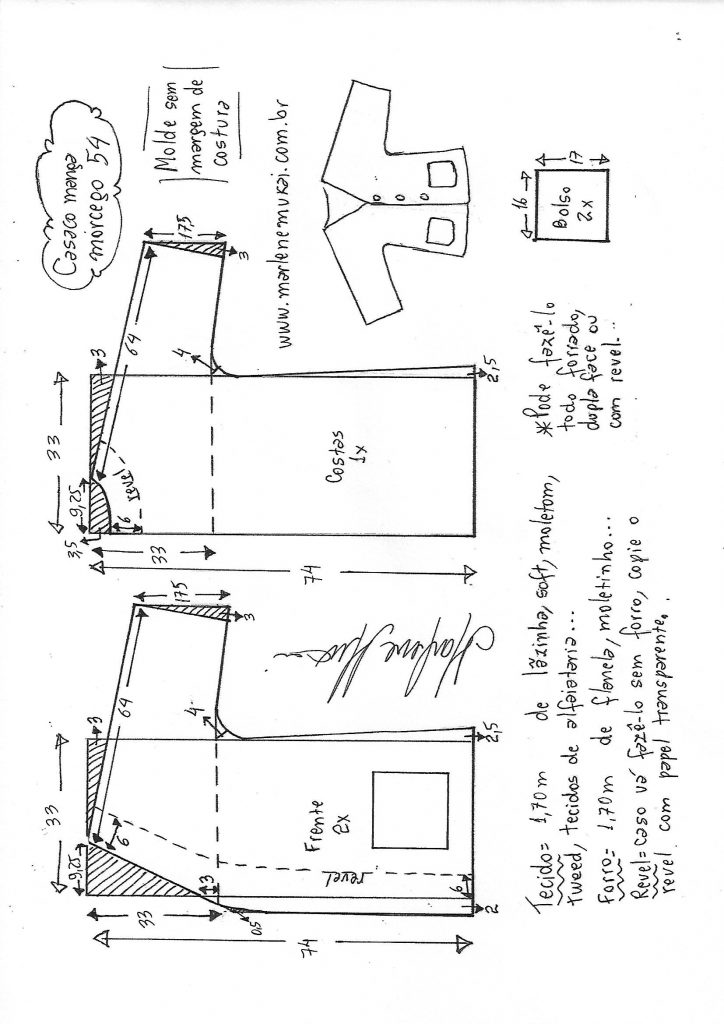 Casaco manga
morcego 54
Molde sem
margem de
costura
www.marlenemukai.com.br
17,5
3
64
3
4
33
9,25
revel
6
3,5
33
74
2,5
Costas
1x
16
17
Bolso
2x
*Pode fazê-lo
todo forrado,
dupla face ou
com revel...
17,5
3
64
3
4
33
9,25
6
33
3
0,5
74
2,5
Frente
2x
revel
6
2
Tecido= 1,70m de lãzinha, soft, moletom,
tweed, tecidos de alfaiataria...
Forro= 1,70m de flanela, moletinho...
Revel= caso vá fazê-lo sem forro, copie o
revel com papel transparente.